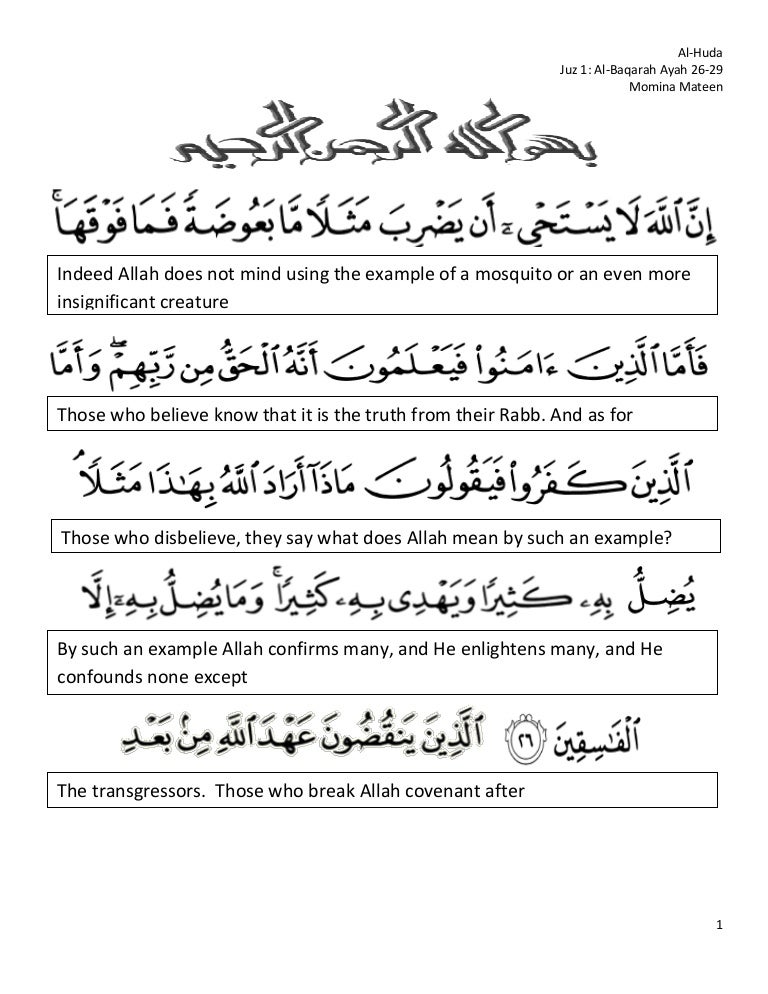 Al-Huda
Juz 1: Al-Baqarah Ayah 26-29
Momina Mateen
بسم الله الرحمن الرحيم
إِنَّ ٱللَّهَ لَا يَسْتَحْىِۦٓ أَن يَضْرِبَ مَثَلًا مَّا بَعُوضَةً فَمَا فَوْقَهَا ۚ
Indeed Allah does not mind using the example of a mosquito or an even more
insignificant creature
فَأَمَّا ٱلَّذِينَ ءَامَنُوا۟ فَيَعْلَمُونَ أَنَّهُ ٱلْحَقُّ مِن رَّبِّهِمْ ۖ وَأَمَّا
Those who believe know that it is the truth from their Rabb. And as for
ٱلَّذِينَ كَفَرُوا۟ فَيَقُولُونَ مَاذَآ أَرَادَ ٱللَّهُ بِهَٰذَا مَثَلًا ۘ
Those who disbelieve, they say what does Allah mean by such an example?
يُضِلُّ بِهِۦ كَثِيرًا وَيَهْدِى بِهِۦ كَثِيرًا ۚ وَمَا يُضِلُّ بِهِۦٓ إِلَّا
By such an example Allah confirms many, and He enlightens many, and He
confounds none except
ٱلْفَٰسِقِينَ ٢٦ ٱلَّذِينَ يَنقُضُونَ عَهْدَ ٱللَّهِ مِنۢ بَعْدِ
The transgressors. Those who break Allah covenant after
1